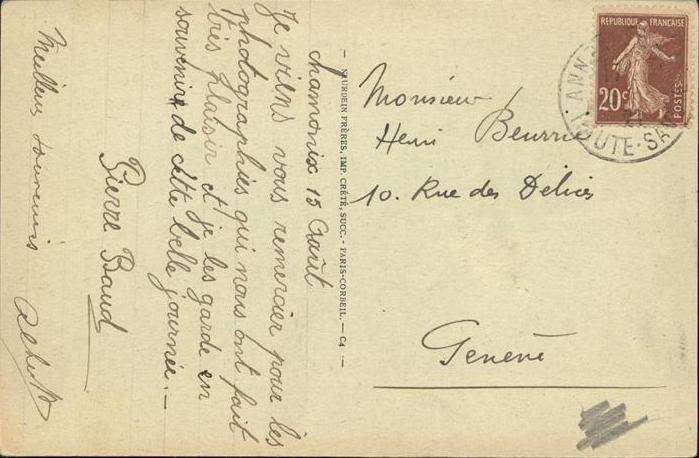 Chamonix 15 Août
Je viens vous remercier pour les
photographies qui nous ont fait
très plaisir et je les garde en
souvenir de cette belle journée. –
Pierre Baud
Meilleurs souvenirs
– NEURDEIN FRÈRES, IMP. CRÉTÉ, SUCC. - PARIS-CORBEIL. – C4 –
Monsieur
Henri
10. Rue des Délices
Genève
REPUBLIQUE FRANÇAISE
20c
POSTES